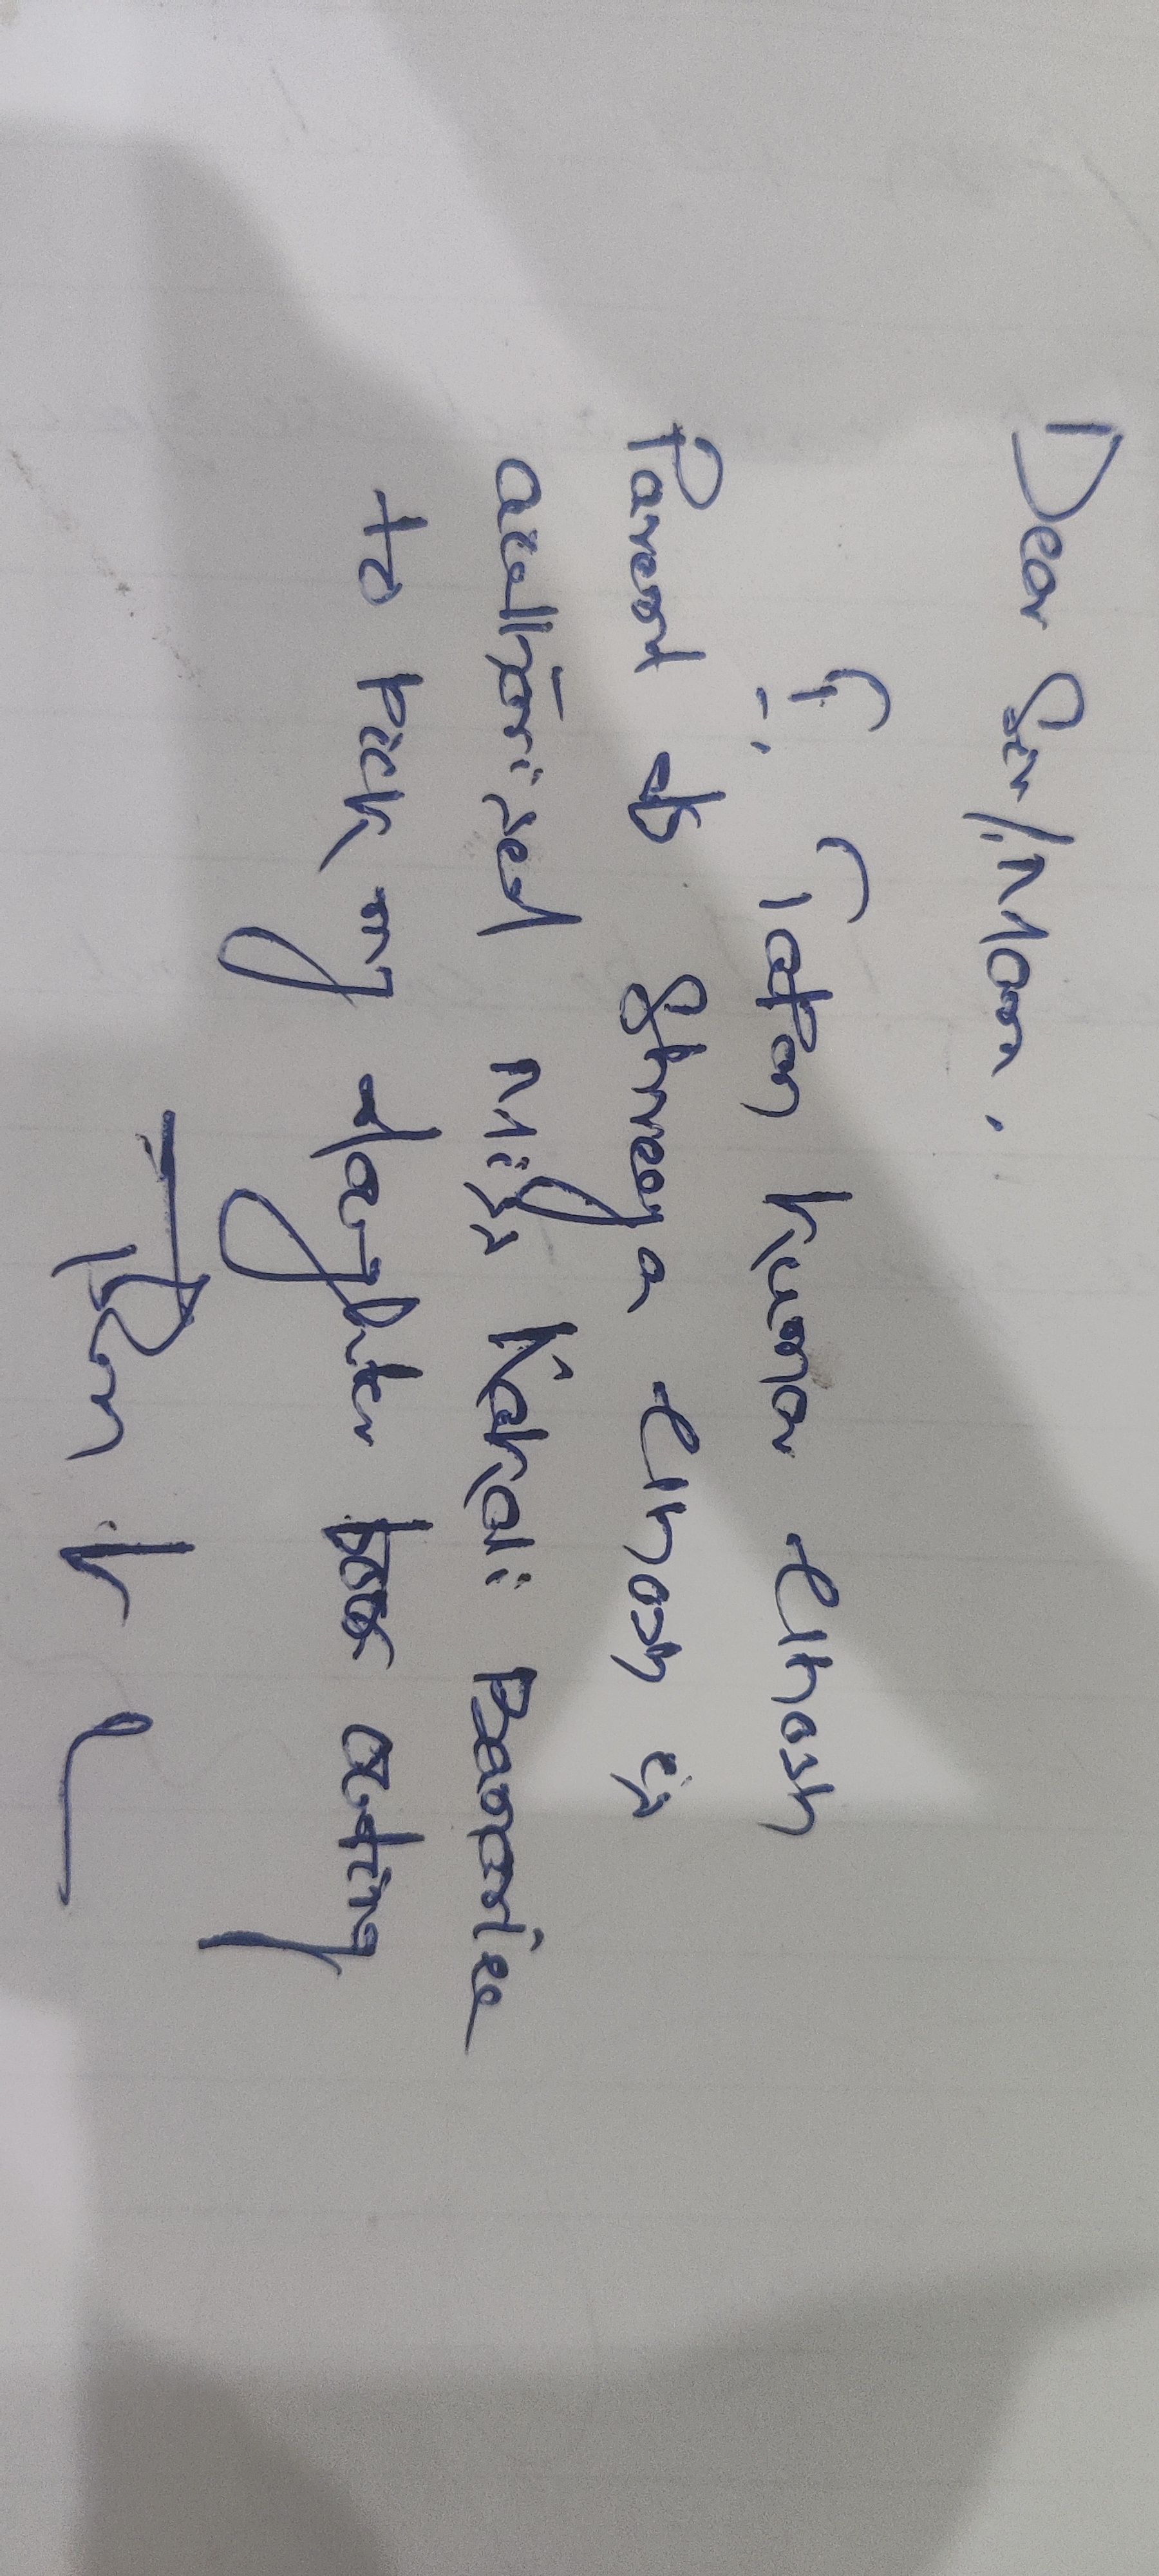 Dear Sir/Mam,
I, Tapan Kumar Ghosh
Parent of Shreya Ghosh is
authorised Miss Kakali Banerjee
to pick my daughter for outing